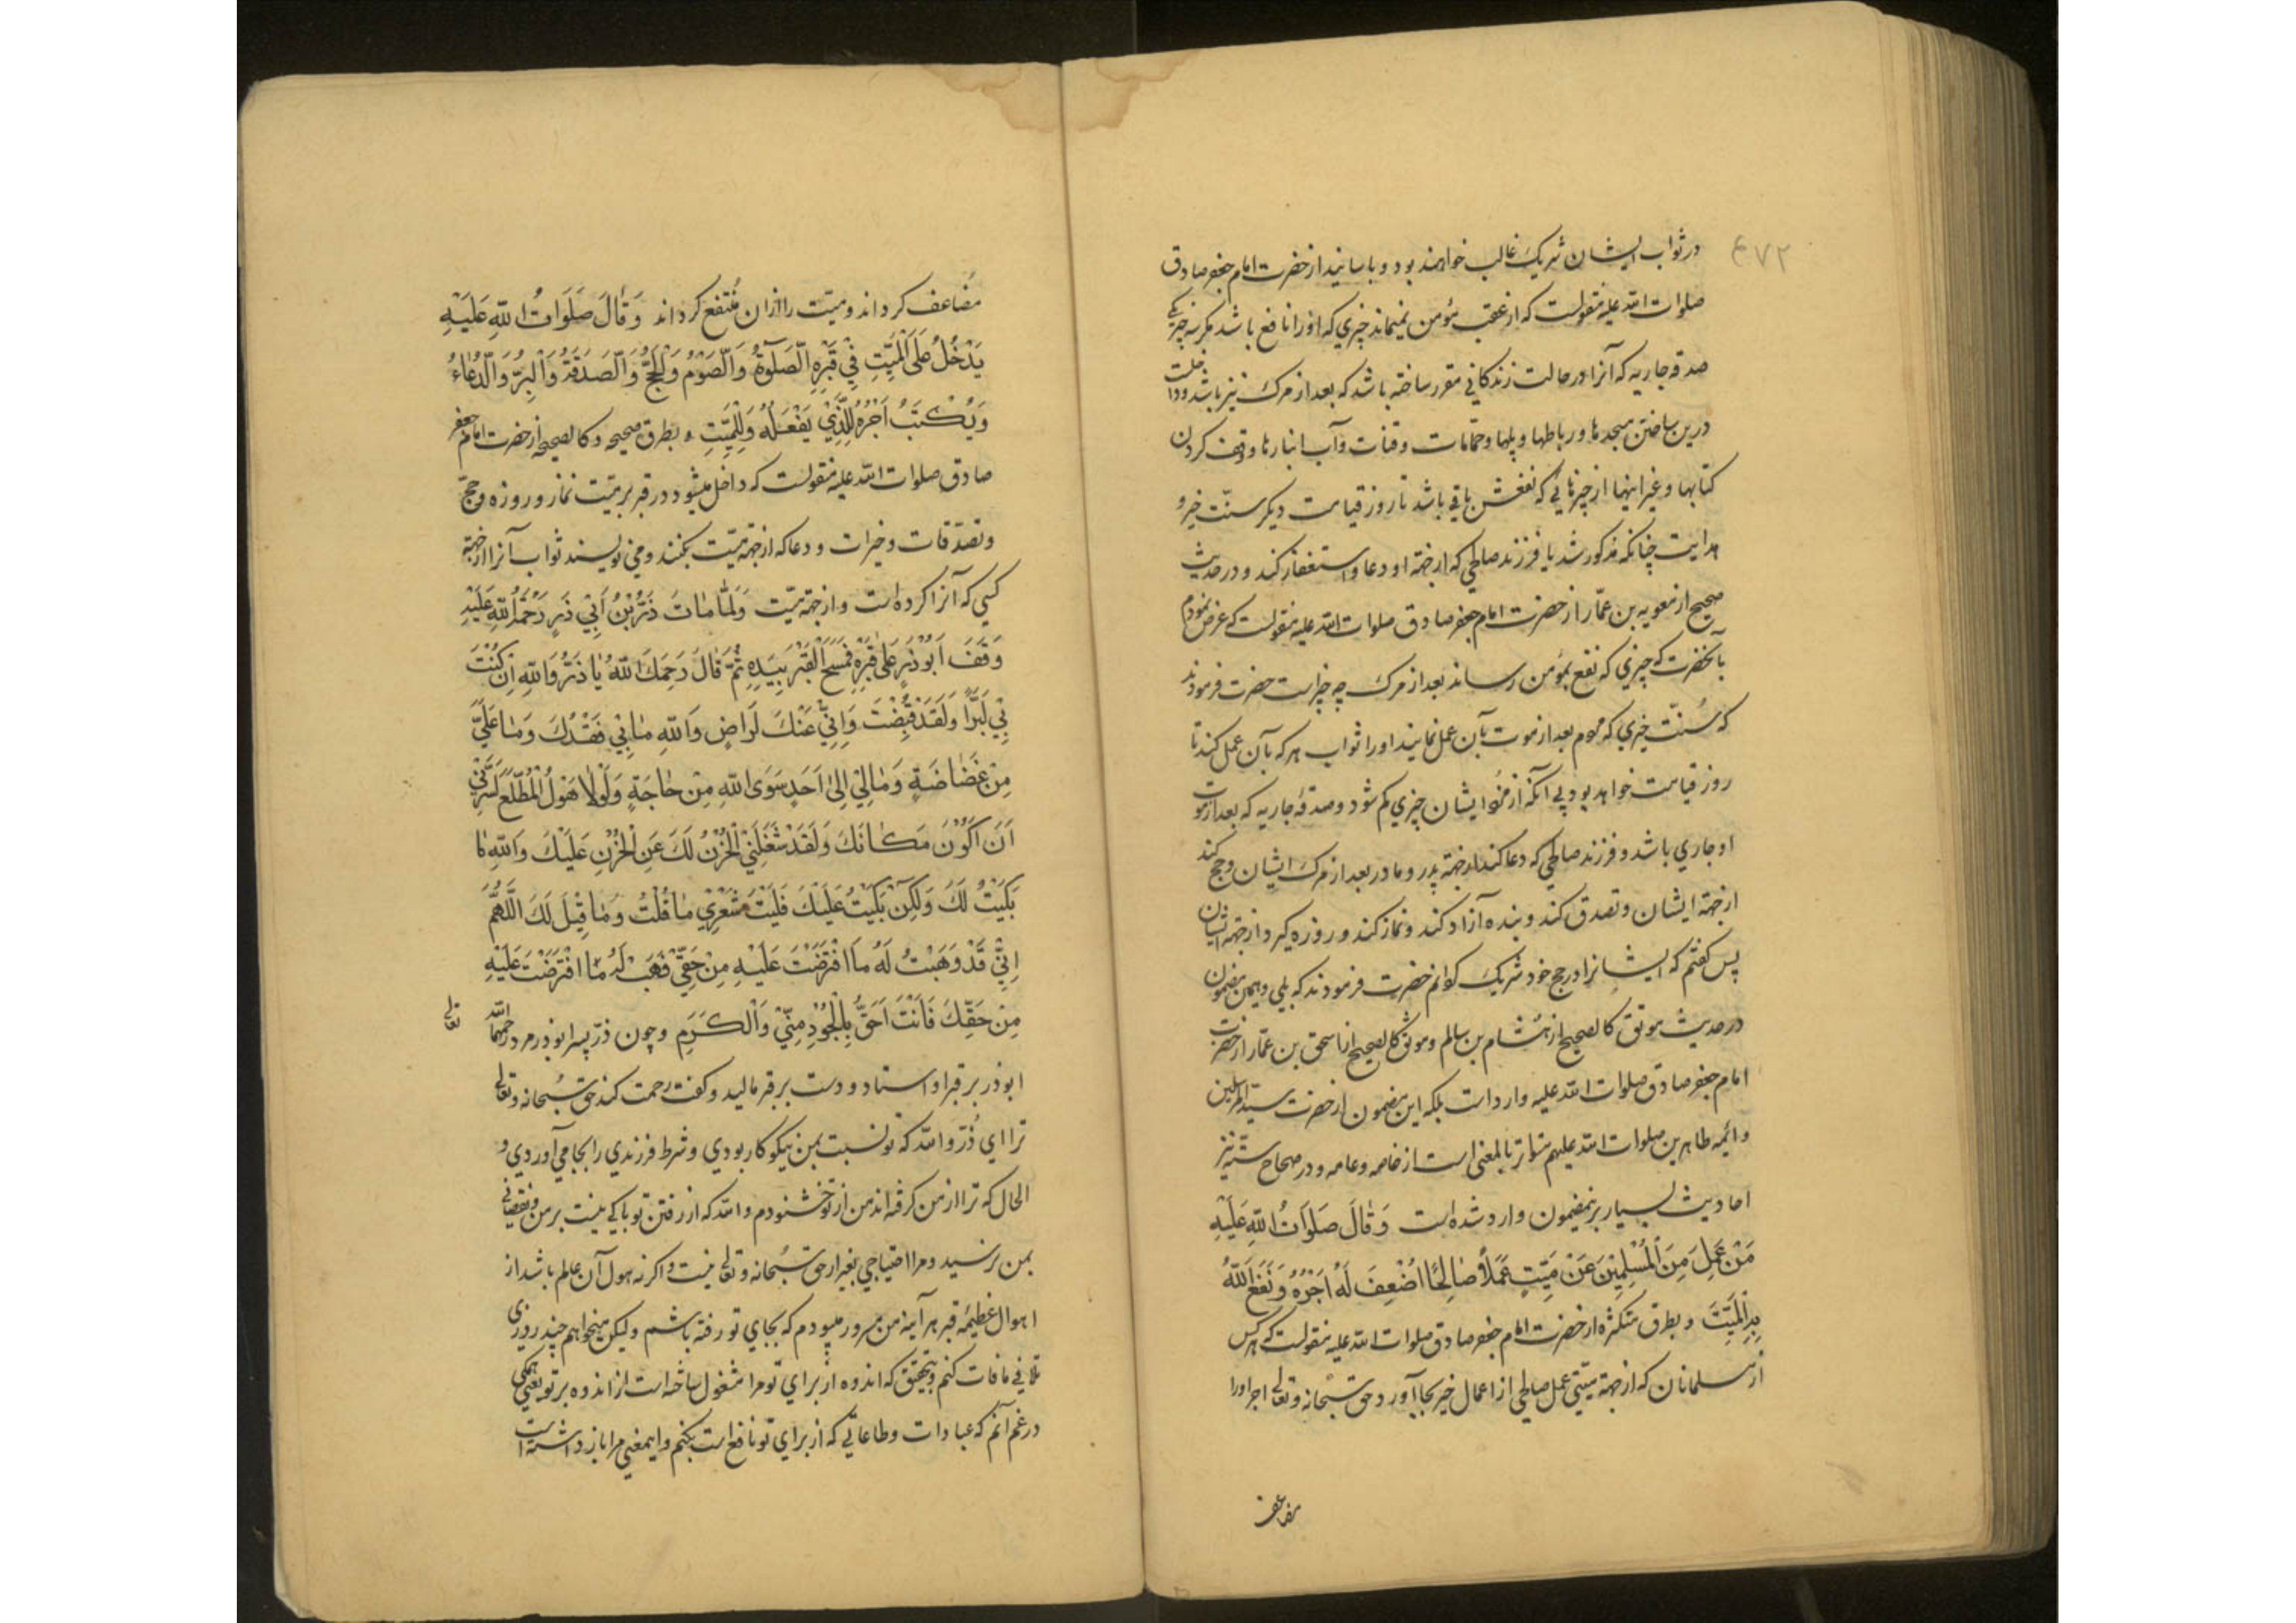 ۴۷۲
در ثواب ایشان شریک غالب خواهند بود و باسانید از حضرت امام جعفر صادق
صلوات الله علیه منقولست که از عقب مؤمن نمیماند چیزی که او را نافع باشد مکر سه چیز یکی
صدقه جاریه که آنرا در حالت زندکانی مقرر ساخته باشد که بعد از مرک نیز باشد و داخلست
درین ساختن مسجدها و رباطها و پلها و حمّامات و قنات و آب انبارها و وقف کردن
کتابها و غیر اینها از چیزهائی که نفعش باقی باشد تا روز قیامت دیکر سنّت خیر و
هدایت چنانکه مذکور شد یا فرزند صالحی که از جهة او دعا و استغفار کند و در حدیث
صحیح از معویه بن عمّار از حضرت امام جعفر صادق صلوات الله علیه منقولست که عرض نمودم
بآنحضرت که چیزی که نفع بمؤمن رساند بعد از مرک چه چیز است حضرت فرمودند
که سُنّت خیری که مردم بعد از موت بآن عمل نمایند او را ثواب هر که بآن عمل کند تا
روز قیامت خواهد بود بی آنکه از مُزد ایشان چیزی کم شود و صدقه جاریه که بعد از موت
او جاری باشد و فرزند صالحی که دعا کند از جهة پدر و مادر بعد از مرک ایشان و حج کند
از جهة ایشان و تصدق کند و بنده آزاد کند و نماز کند و روزه کیرد از جهة ایشان
پس کفتم که ایشانرا در حج خود شریک کنم حضرت فرمودند که بلی و بهمین مضمون
در حدیث موثق کالصحیح از هشام بن سالم و موثق کالصحیح از اسحق بن عمّار از حضرت
امام جعفر صادق صلوات الله علیه وارد است بلکه این مضمون از حضرت سید المرسلین
و ائمه طاهرین صلوات الله علیهم متواتر بالمعنی است از خاصه و عامه و در صحاح ستّه نیز
احادیث بسیار برینمضمون وارد شده است وَقٰالَ صَلَوٰاتُ اللّٰهِ عَلَیْهِ
مَنْ عَمِلَ مِنَ الْمُسْلِمِیْنَ عَنْ مَیِّتٍ عَمَلاً صٰالِحًا اُضْعِفَ لَهُ اَجْرُهُ وَنَفَعَ اللّٰهُ
بِهِ الْمَیِّتَ و بطرق متکثره از حضرت امام جعفر صادق صلوات الله علیه منقولست که هر کس
از مسلمانان که از جهة میّتی عمل صالحی از اعمال خیر بجا آورد حق سبحانه و تعالی اجر او را
مضاعف
مضاعف کرداند و میّت را از ان مُنتفع کرداند وَقٰالَ صَلَوَاتُ اللّٰهِ عَلَیْهِ
یَدْخُلُ عَلَی الْمَیِّتِ فِیْ قَبْرِهِ الصَّلٰوةُ وَالصَّوْمُ وَالْحَجُّ وَالصَّدَقَةُ وَالْبِرُّ وَالدُّعٰاءُ
وَیُکْتَبُ اَجْرُهُ لِلَّذِیْ یَفْعَلُهُ وَلِلْمَیِّتِ و بطرق صحیحه و کالصحیحه از حضرت امام جعفر
صادق صلوات الله علیه منقولست که داخل میشود در قبر بر میّت نماز و روزه و حجّ
و تصدّقات و خیرات و دعا که از جهة میّت بکنند و می نویسند ثواب آنرا از جهة
کسی که آنرا کرده است و از جهة میّت وَلَمّٰا مٰاتَ ذَرُّ بْنُ اَبِیْ ذَرٍّ رَحْمَةُ اللّٰهِ عَلَیْهِ
وَقَفَ اَبُوْذَرٍّ عَلیٰ قَبْرِهِ فَمَسَحَ الْقَبْرَ بِیَدِهِ ثُمَّ قٰالَ رَحِمَکَ اللّٰهُ یٰا ذَرُّ وَاللّٰهِ اِنْ کُنْتَ
بِیْ لَبَرًّا وَلَقَدْ قُبِضْتَ وَاِنِّیْ عَنْکَ لَرَاضٍ وَاللّٰهِ مٰابِیْ فَقْدُکَ وَمٰا عَلَیَّ
مِنْ غَضٰاضَةٍ وَمٰالِیْ اِلیٰ اَحَدٍ سِوَی اللّٰهِ مِنْ حٰاجَةٍ وَلَوْلٰا هَوْلُ الْمُطَّلَعِ لَسَرَّنِیْ
اَنْ اَکُوْنَ مَکٰانَکَ وَلَقَدْ شَغَلَنِیْ الْحُزْنُ لَکَ عَنِ الْحُزْنِ عَلَیْکَ وَاللّٰهِ مٰا
بَکَیْتُ لَکَ وَلٰکِنْ بَکَیْتُ عَلَیْکَ فَلَیْتَ شِعْرِیْ مٰا قُلْتُ وَمٰا قِیْلَ لَکَ اَللّٰهُمَّ
اِنِّیْ قَدْ وَهَبْتُ لَهُ مَا افْتَرَضْتَ عَلَیْهِ مِنْ حَقِّیْ فَهَبْ لَهُ مَا افْتَرَضْتَ عَلَیْهِ
مِنْ حَقِّکَ فَاَنْتَ اَحَقُّ بِالْجُوْدِ مِنِّیْ وَالْکَرَمِ و چون ذرّ پسر ابوذر مرد رحمهما الله تعالی
ابوذر بر قبر او استاد و دست بر قبر مالید و کفت رحمت کند حق سُبحانه و تعالی
ترا ای ذُرّ و الله که تو نسبت بمن نیکو کار بودی و شرط فرزندی را بجا می آوردی و
الحال که ترا از من کرفته اند من از تو خشنودم و الله که از رفتن تو باکی نیست بر من و نقصانی
بمن نرسید و مرا احتیاجی بغیر از حق سبحانه و تعالی نیست و اکر نه هول آن عالم باشد از
اهوال عظیمه قبر هر آینه من مسرور میبودم که بجای تو رفته باشم ولیکن میخواهم چند روزی
تلافی مافات کنم و بتحقیق که اندوه از برای تو مرا مشغول ساخته است از اندوه بر تو یعنی همکی
در غم آنم که عبادات و طاعاتی که از برای تو نافع است بکنم و اینمعنی مرا باز داشته است